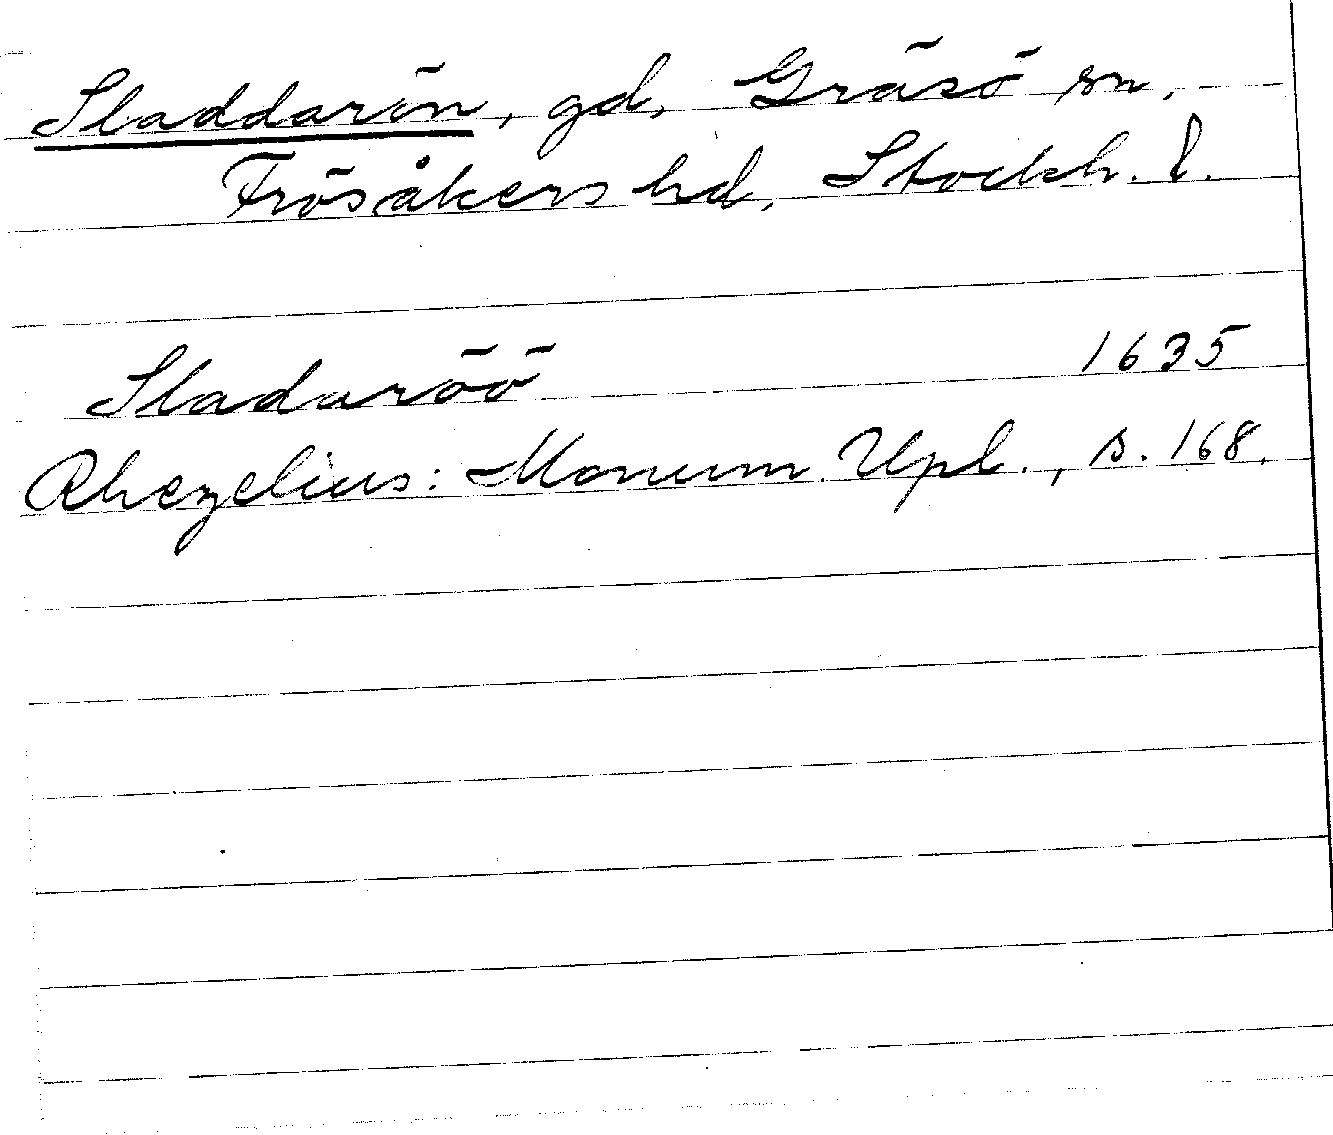 Sladdarön, gd, Gräsö sn,
Frösåkers hd, Stockh. l.
Sladaröö 1635
Rhezelius: Monum. Upl., s. 168.